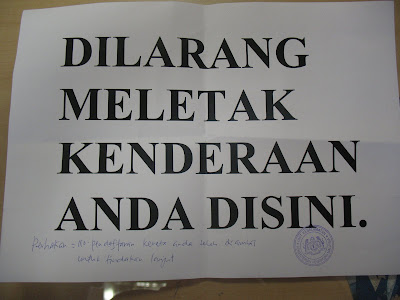 DILARANG
MELETAK
KENDERAAN
ANDA DISINI.
Perhatian : No pendaftaran kereta anda telah diambil
untuk tindakan lanjut